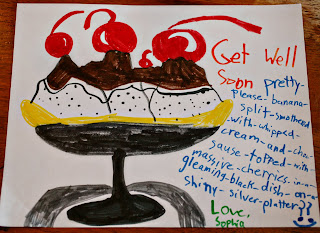 Get Well
Soon pretty-
please-banana-
split-smothered
-with-whipped-
cream-and-choc-
sause-topped-with-
massive-cherries-in-a-
gleaming-black-dish-on-a-
shiny-silver-platter??
Love,
Sophia